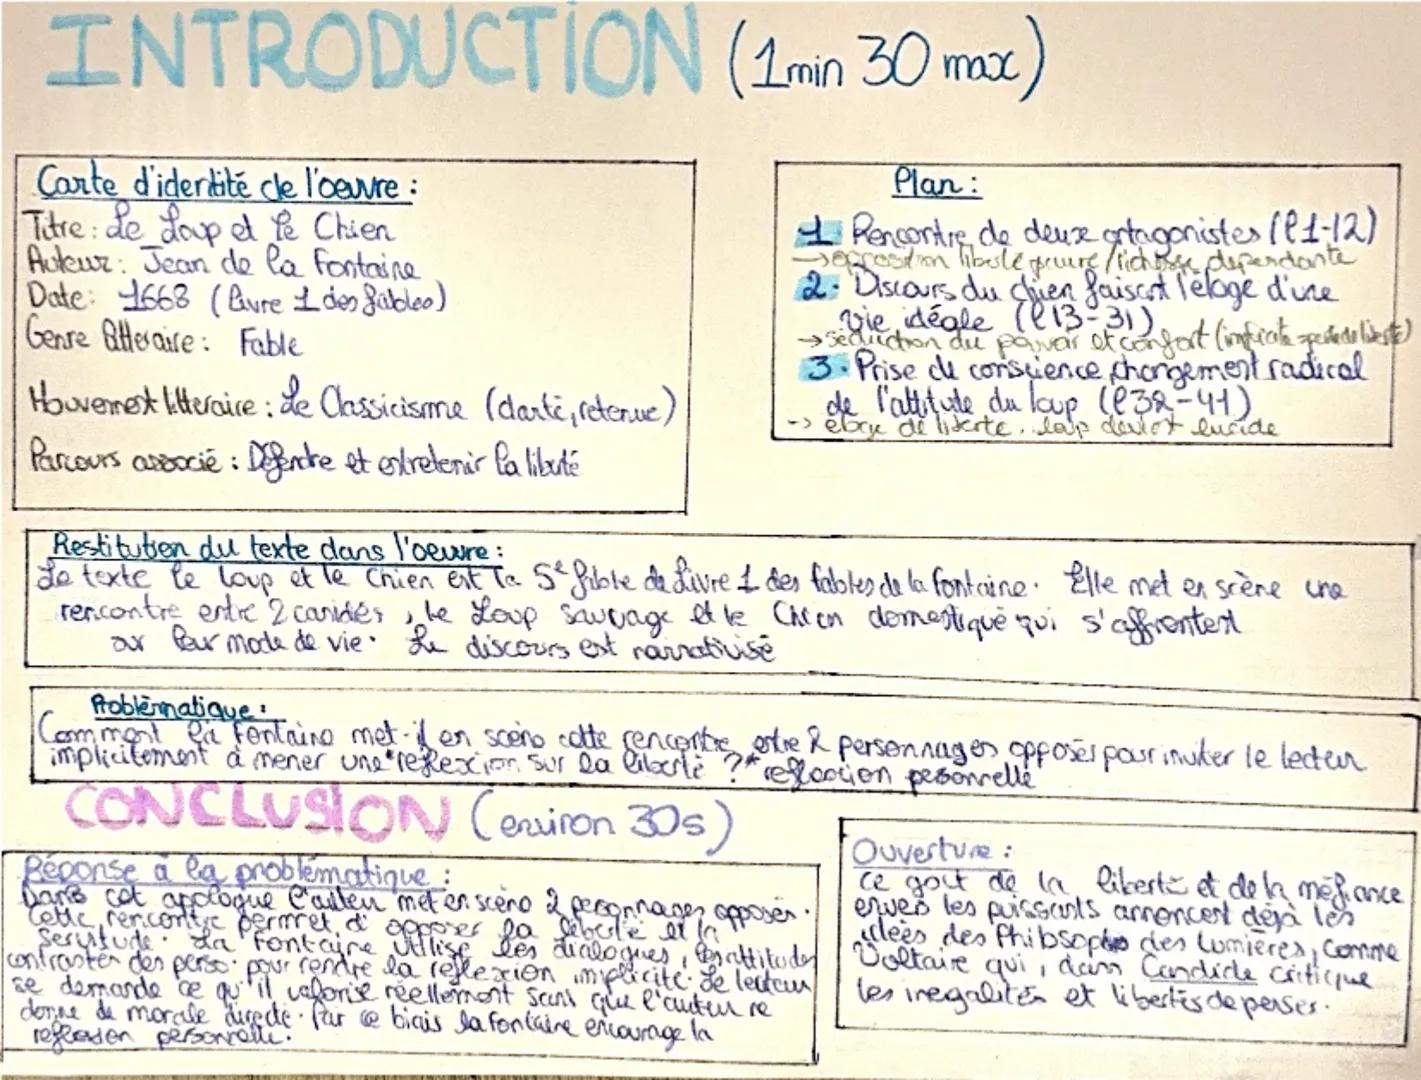 INTRODUCTION (1 min 30 max)
Carte d'identité de l'oeuvre :
Titre : Le Loup et le Chien
Auteur : Jean de la Fontaine
Date : 1668 (livre 1 des fables)
Genre litteraire : Fable
Mouvement litteraire : Le Classicisme (clarté, retenue)
Parcours associé : Défendre et entretenir la liberté
Plan :
1 Rencontre de deux antagonistes (l 1-12)
→ liberté pauvre / richesse dependante
2. Discours du chien faisant l'éloge d'une
vie idéale (l 13-31)
→ séduction du pouvoir et confort (implicite = perte de liberté)
3. Prise de conscience, changement radical
de l'attitude du loup (l 32-41)
-> éloge de liberte, loup devient lucide
Restitution du texte dans l'oeuvre :
Le texte le Loup et le Chien est la 5e fable de Livre 1 des fables de la fontaine. Elle met en scène une
rencontre entre 2 canidés, le Loup sauvage et le Chien domestiqué qui s'affrontent
sur leur mode de vie. Le discours est narrativisé
Problèmatique :
Comment la Fontaine met-il en scène cette rencontre entre 2 personnages opposés pour inviter le lecteur
implicitement à mener une* reflexion sur la liberté ? * reflexion personnelle
CONCLUSION (environ 30s)
Réponse à la problématique :
Dans cet apologue l'auteur met en scène 2 personnages opposés.
Cette rencontre permret d'opposer la liberté et la
servitude. La Fontaine utilise les dialogues, les attitudes
contrastés des perso. pour rendre la réflexion implicite. Le lecteur
se demande ce qu'il valorise réellement sans que l'auteur ne
donne de morale directe. Par ce biais la fontaine encourage la
reflexion personnelle.
Ouverture :
Ce gout de la liberté et de la méfiance
envers les puissants annoncent déjà les
idées des Philosophes des Lumières, comme
Voltaire qui, dans Candide critique
les inegalités et libertés de penser.